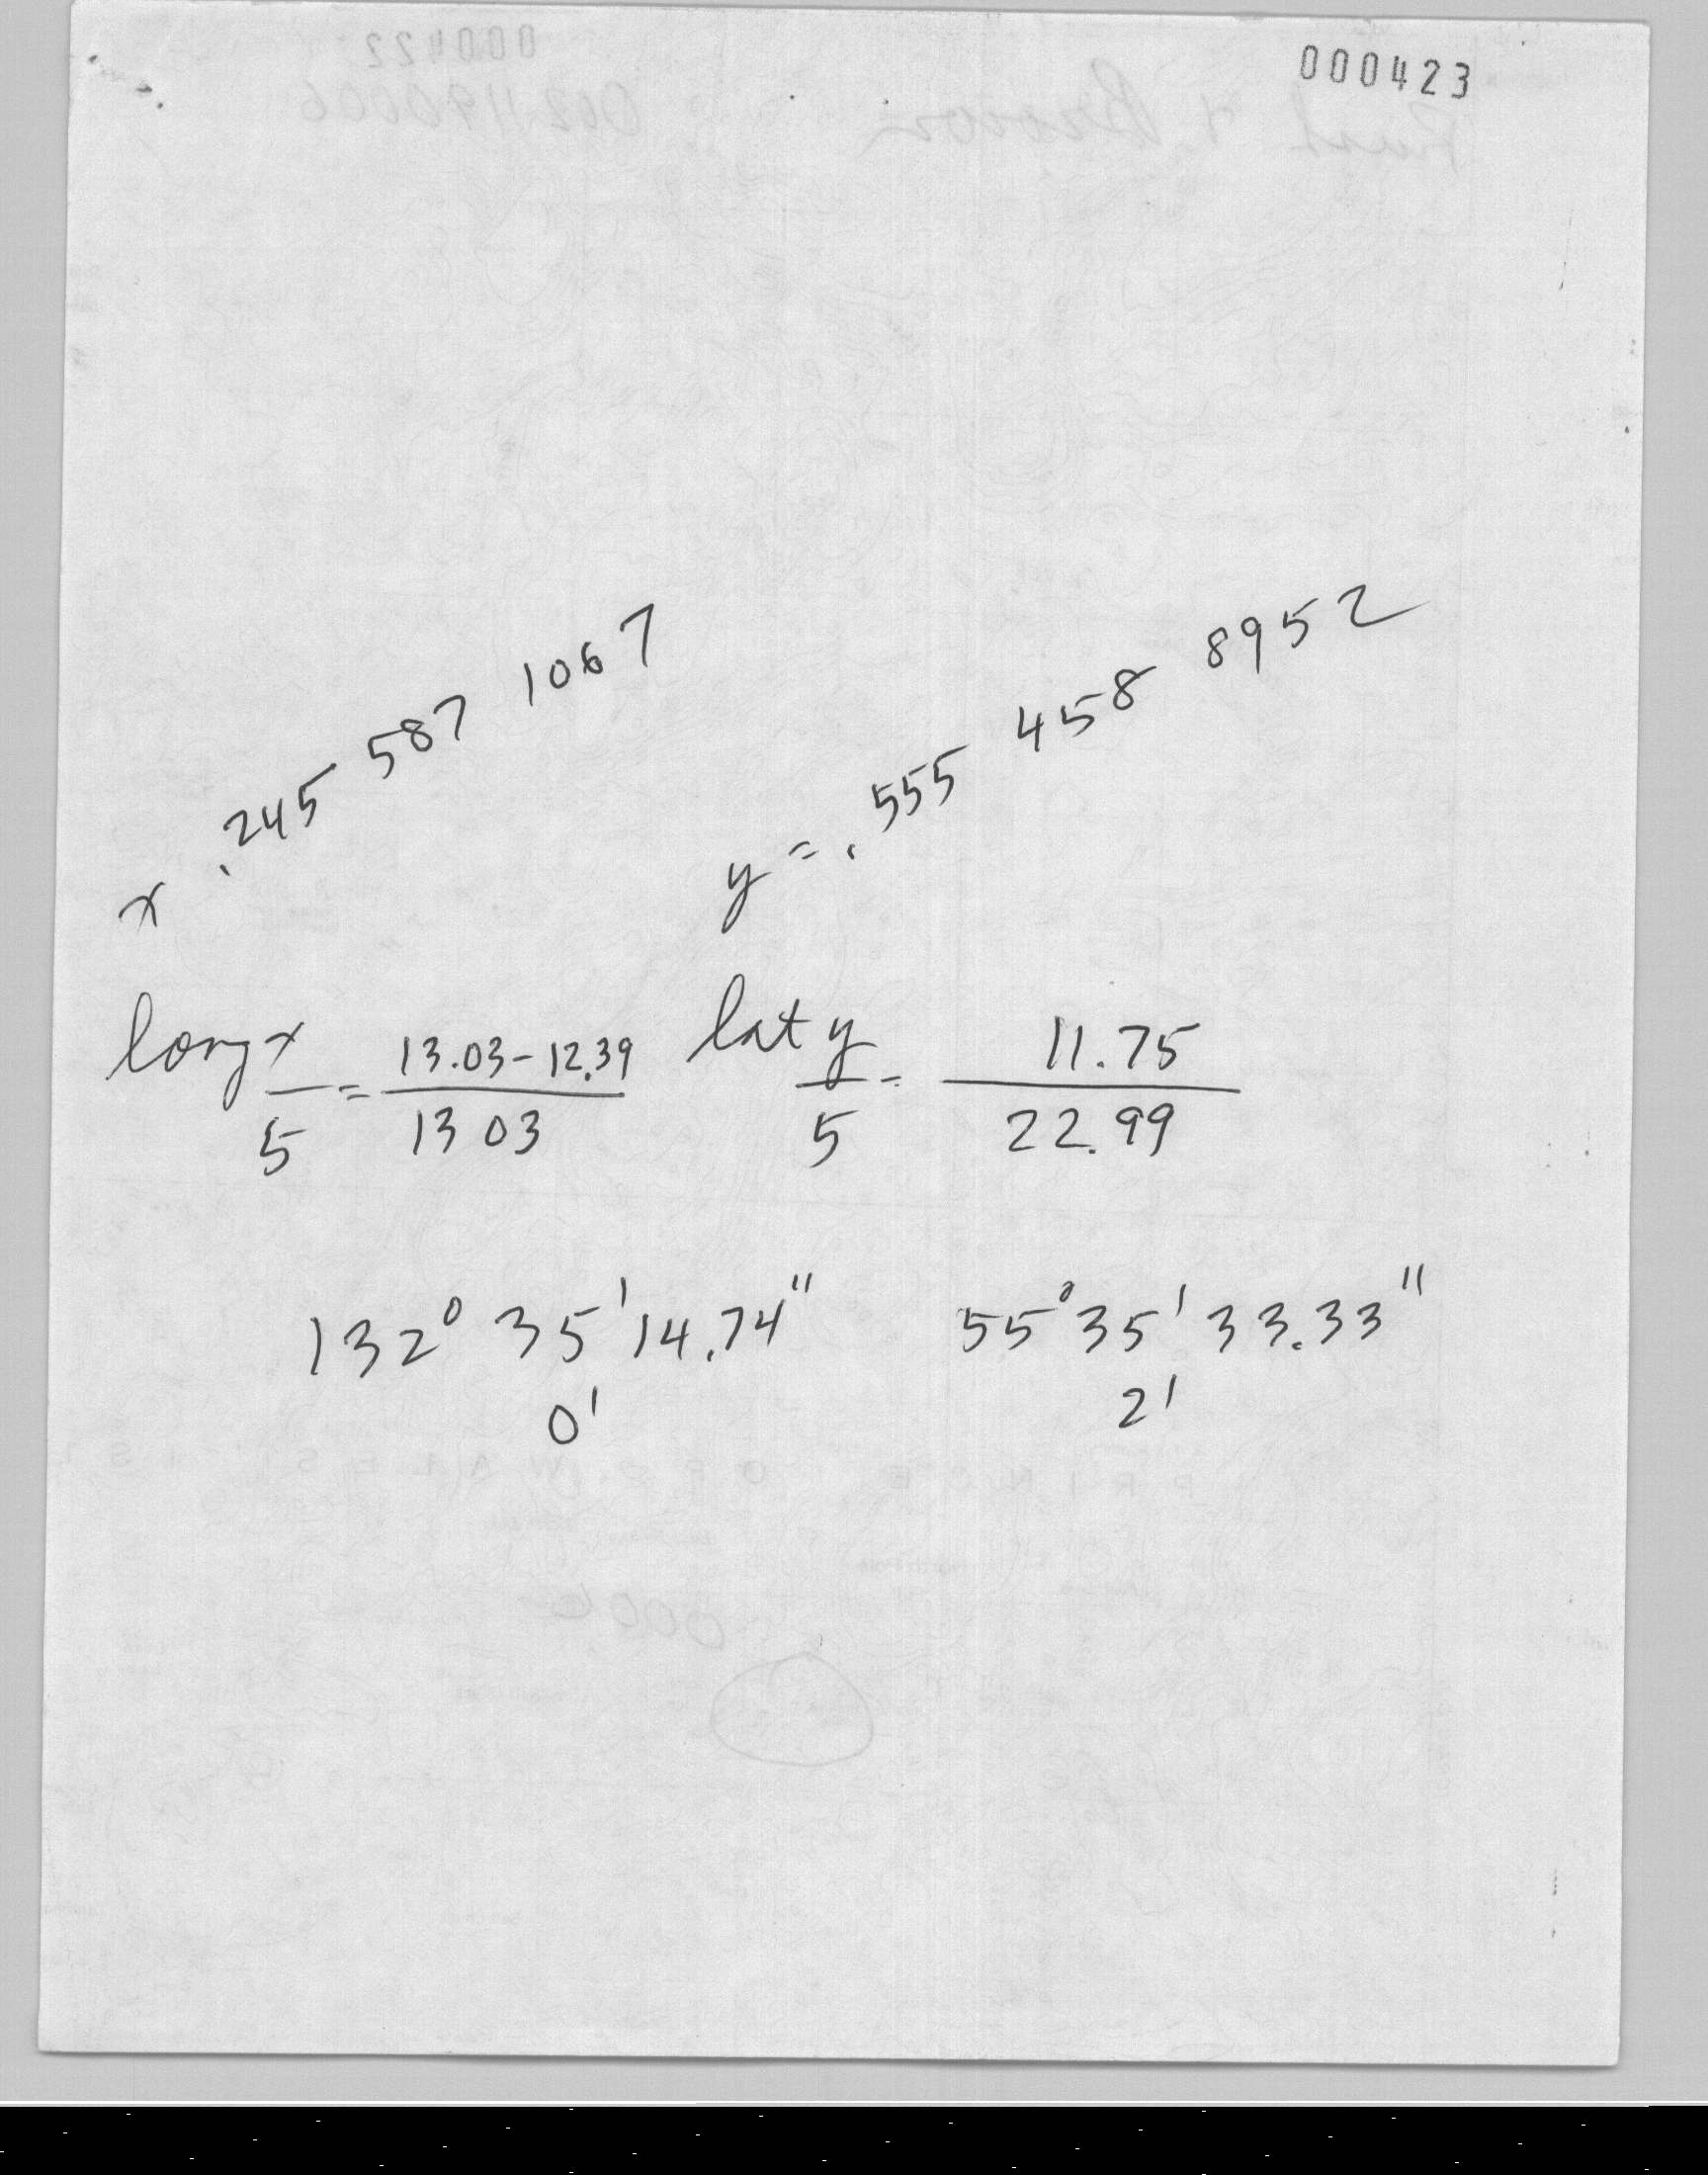 000423
x .245 587 1067 y = .555 458 8952
long x/5 = 13.03-12.39/13 03 lat y/5 = 11.75/22.99
132° 35' 14.74" 55° 35' 33.33"
0' 2'